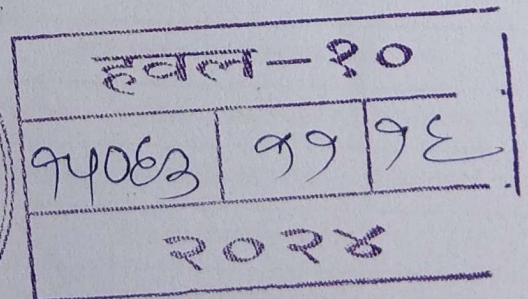 हवल - १०
१५०६३ | ११ | १६
२०२४